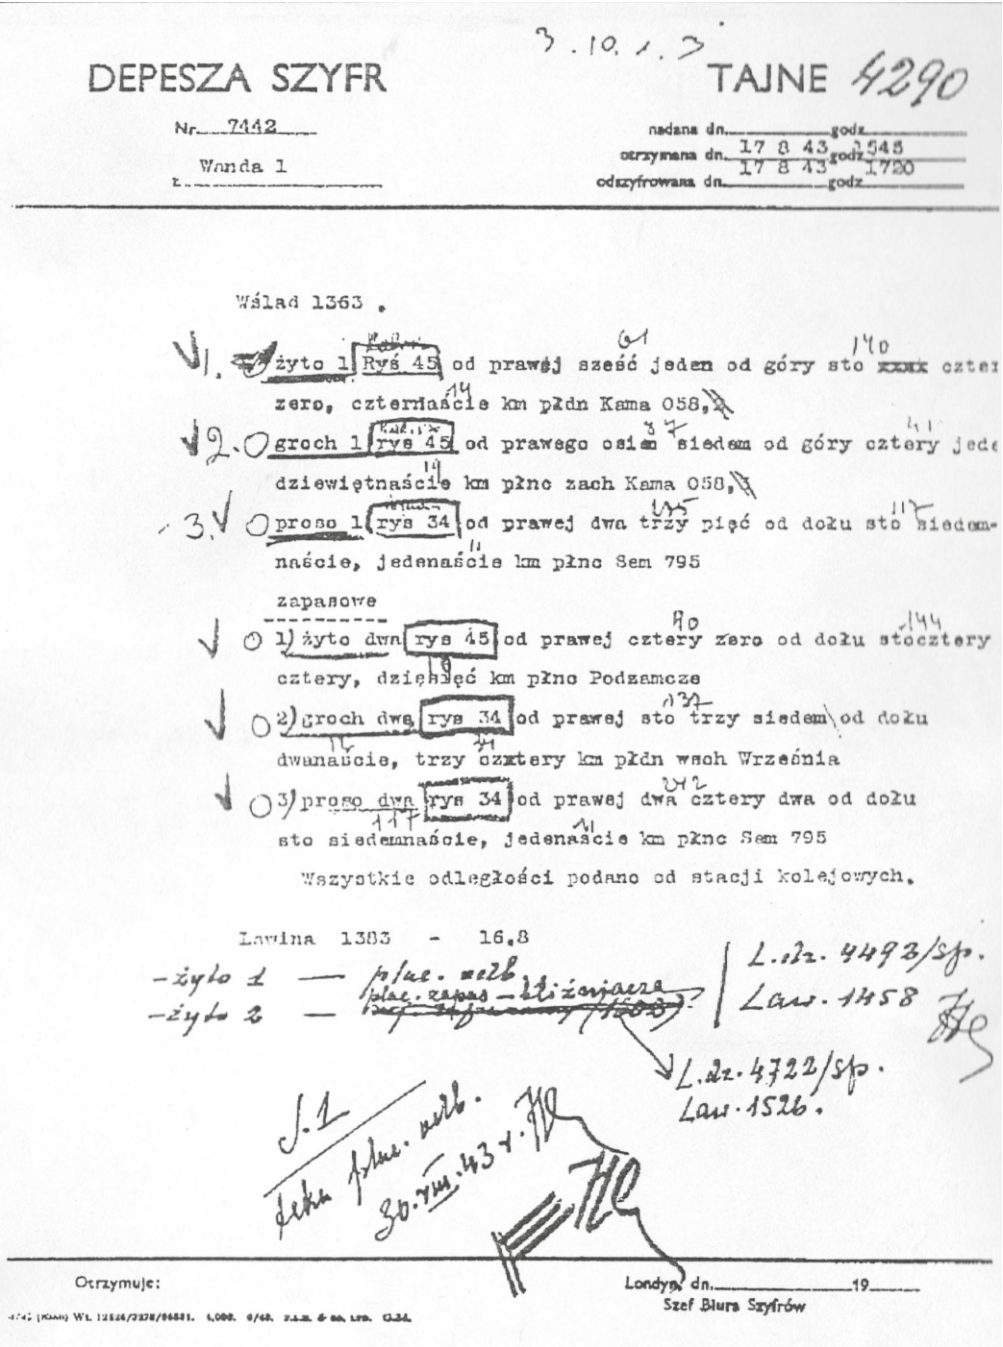 3.10.1.3
DEPESZA SZYFR
TAJNE 4290
Nr 7442
nadana dn. godz.
Wanda 1
otrzymana dn. 17 8 43 godz 1545
odszyfrowana dn. 17 8 43 godz. 1720
Wślad 1363 .
61 140
1. żyto 1 Ryś 45 od prawej sześć jeden od góry sto xxxx czter
14
zero, czternaście km płdn Kama 058,
87 41
2. groch 1 rys 45 od prawego osiem siedem od góry cztery jede
19
dziewiętnaście km płnc zach Kama 058,
117
3. proso 1 rys 34 od prawej dwa trzy pięć od dołu sto siedem-
11
naście, jedenaście km płnc Sem 795
zapasowe
40 144
1) żyto dwa rys 45 od prawej cztery zero od dołu stocztery
9
cztery, dziewięć km płnc Podzamcze
137
2) groch dwa rys 34 od prawej sto trzy siedem od dołu
12
dwanaście, trzy cztery km płdn wsch Września
242
3) proso dwa rys 34 od prawej dwa cztery dwa od dołu
117 11
sto siedemnaście, jedenaście km płnc Sem 795
Wszystkie odległości podano od stacji kolejowych.
Lawina 1383 - 16.8
- żyto 1 — plac.
plac. zapas - bliźniacza
- żyto 2 —
L.dz. 4493/sp.
Law. 1458
L.dz. 4722/sp.
Law. 1526.
J.1
teka plac.
30.VIII.43 r.
Otrzymuje:
Londyn, dn. 19
Szef Biura Szyfrów